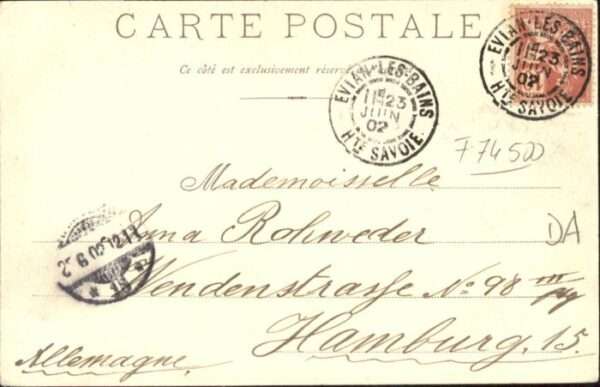 CARTE POSTALE
Ce côté est exclusivement réservé
EVIAN-LES-BAINS
11E 23
JUIN
02
HTE SAVOIE.
EVIAN-LES-BAINS
11E 23
JUIN
02
HTE SAVOIE
F 74500
Mademoiselle
Rohweder
DA
Wendenstrasse No 98 III
Hamburg. 15.
Allemagne.